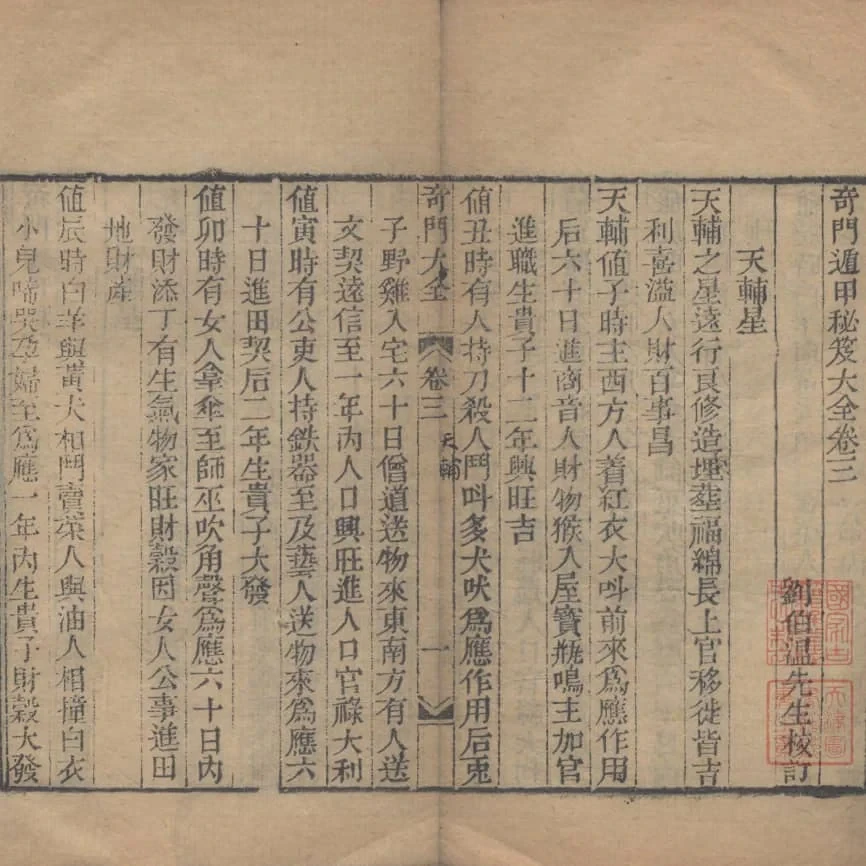 奇門遁甲秘笈大全卷三
劉伯溫先生校訂
天輔星
天輔之星遠行良修造埋塟福綿長上官移徙皆吉
利喜溢人財百事昌
天輔值子時主西方人着紅衣大呌前來為應作用
后六十日進商音人財物猴入屋寶瓶鳴主加官
進職生貴子十二年興旺吉
值丑時有人持刀殺人鬥呌多犬吠為應作用后兎
奇門大全 卷三 天輔 一
子野雞入宅六十日僧道送物來東南方有人送
文契遠信至一年內人口興旺進人口官祿大利
值寅時有公吏人持鉄器至及藝人送物來為應六
十日進田契后二年生貴子大發
值卯時有女人拿傘至師巫吹角聲為應六十日內
發財添丁有生氣物家旺財穀因女人公事進田
地財產
值辰時白羊與黃犬相鬥賣菜人與油人相撞白衣
小兒啼哭孕婦至為應一年內生貴子財穀大發